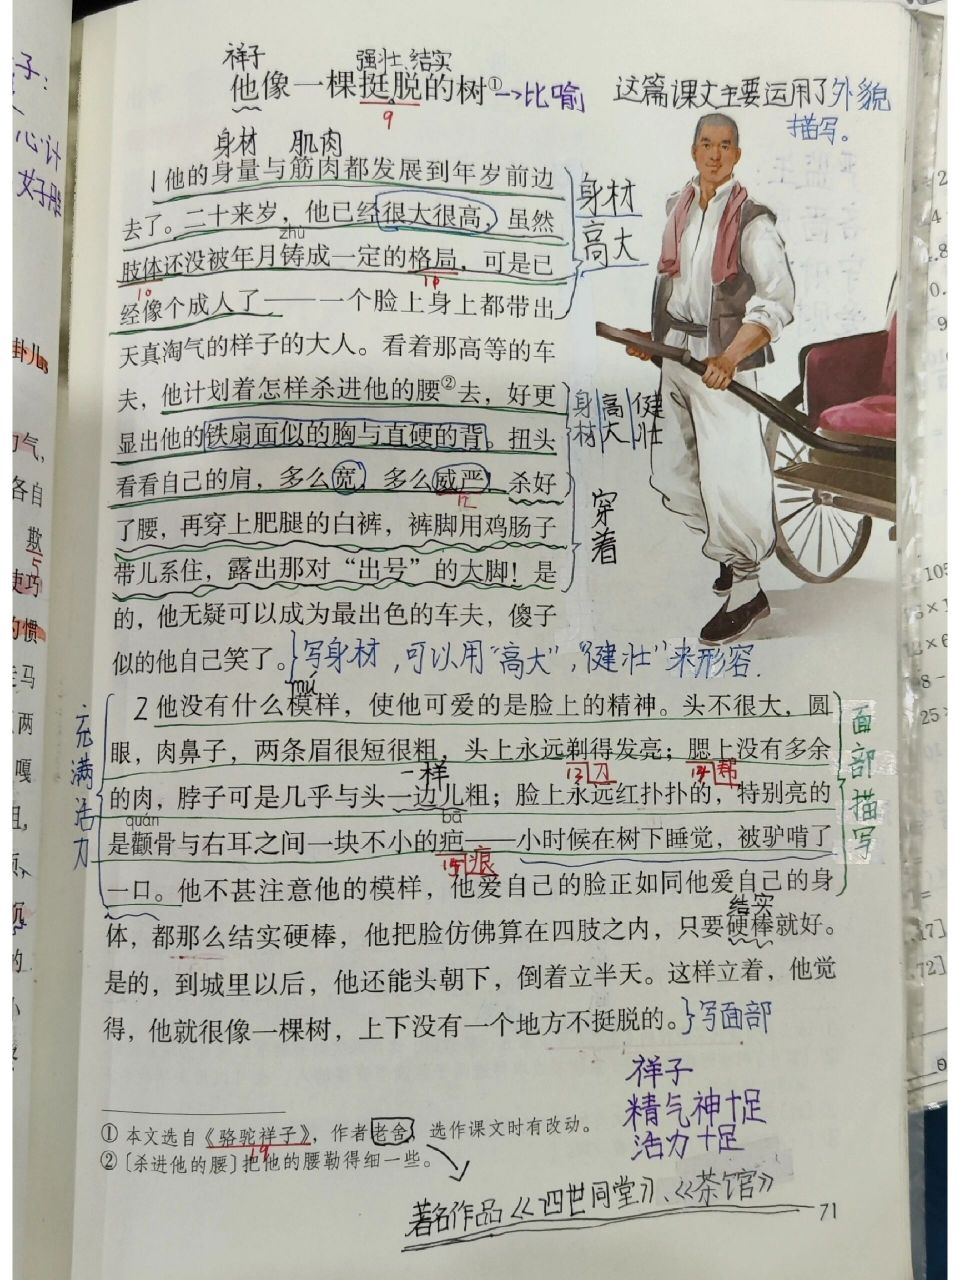 子：
心计
卦儿
气，
各自
欺
5
使巧
的惯
马
两
嘎
的
祥子 强壮、结实
他像一棵挺脱的树①→比喻
9
这篇课文主要运用了外貌
描写。
身材 肌肉
1他的身量与筋肉都发展到年岁前边
去了。二十来岁，他已经很大很高，虽然
zhù
肢体还没被年月铸成一定的格局，可是已
10
经像个成人了——一个脸上身上都带出
天真淘气的样子的大人。看着那高等的车
夫，他计划着怎样杀进他的腰②去，好更
显出他的铁扇面似的胸与直硬的背。扭头
看看自己的肩，多么宽，多么威严！杀好
12
了腰，再穿上肥腿的白裤，裤脚用鸡肠子
带儿系住，露出那对“出号”的大脚！是
的，他无疑可以成为最出色的车夫，傻子
似的他自己笑了。
身材高大
身材 高大 健壮
穿着
写身材，可以用“高大”，“健壮”来形容.
mú
2他没有什么模样，使他可爱的是脸上的精神。头不很大，圆
眼，肉鼻子，两条眉很短很粗，头上永远剃得发亮；腮上没有多余
一样 13刀 14帮
的肉，脖子可是几乎与头一边儿粗；脸上永远红扑扑的，特别亮的
quán bā
是颧骨与右耳之间一块不小的疤——小时候在树下睡觉，被驴啃了
15痕
一口。他不甚注意他的模样，他爱自己的脸正如同他爱自己的身
结实
体，都那么结实硬棒，他把脸仿佛算在四肢之内，只要硬棒就好。
是的，到城里以后，他还能头朝下，倒着立半天。这样立着，他觉
得，他就很像一棵树，上下没有一个地方不挺脱的。
写面部
充满活力
面部描写
祥子
精气神十足
活力十足
① 本文选自《骆驼祥子》，作者老舍，选作课文时有改动。
19
② 〔杀进他的腰〕把他的腰勒得细一些。
著名作品《四世同堂》、《茶馆》
71